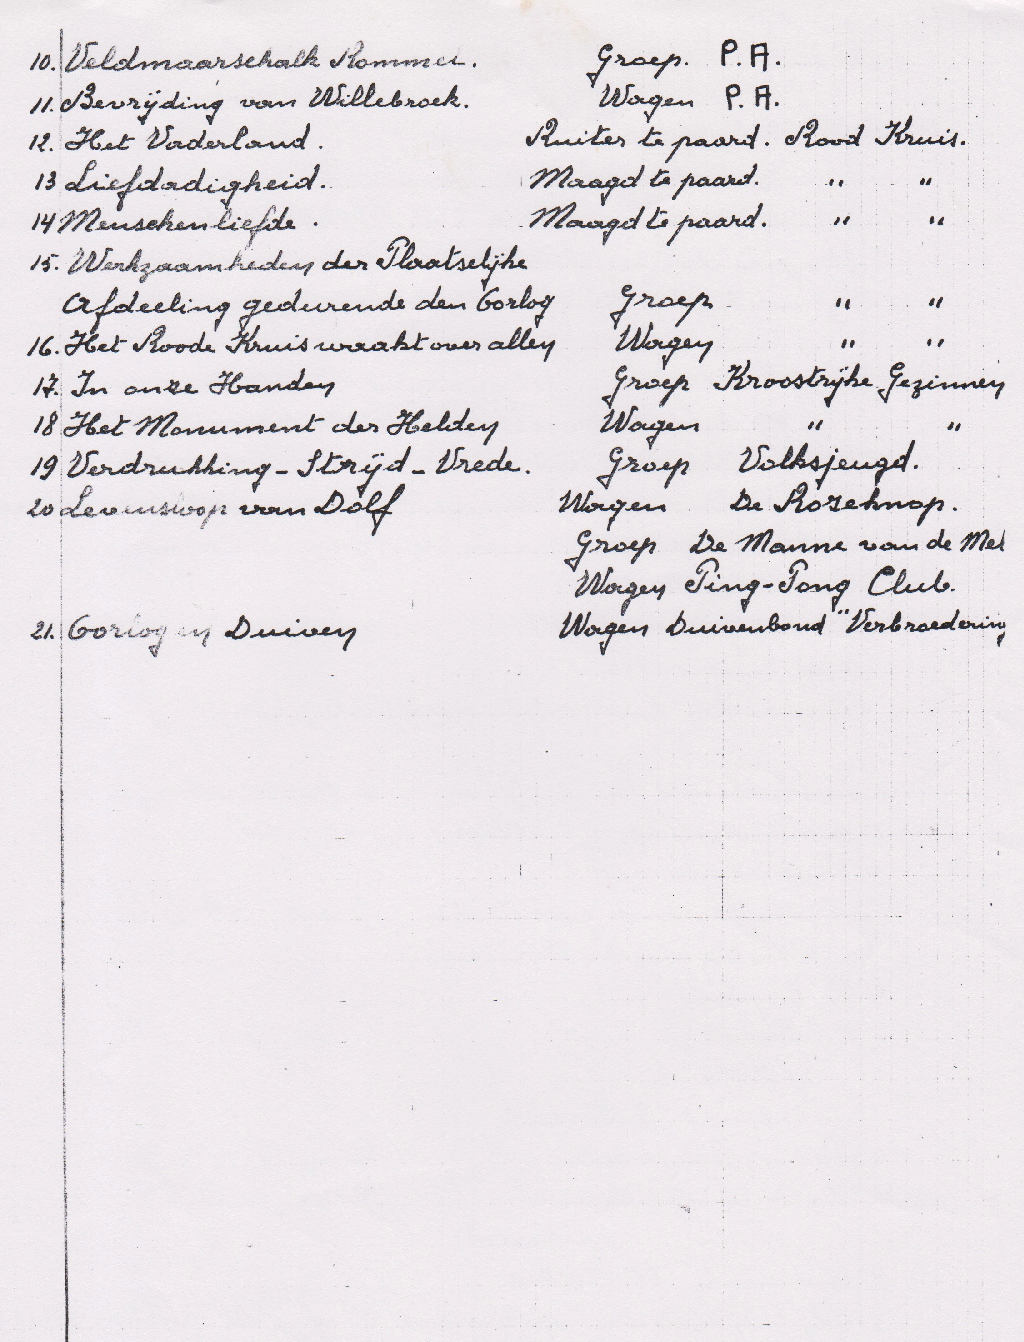 10. Veldmaarschalk Rommel. Groep. P.A.
11. Bevrijding van Willebroek. Wagen P.A.
12. Het Vaderland. Ruiter te paard. Rood Kruis.
13 Liefdadigheid. Maagd te paard. " "
14 Menschenliefde. Maagd te paard. " "
15. Werkzaamheden der Plaatselijke
Afdeeling gedurende den Oorlog Groep " "
16. Het Roode Kruis waakt over allen Wagen " "
17. In onze Handen Groep Kroostrijke Gezinnen
18 Het Monument der Helden Wagen " "
19 Verdrukking - Strijd - Vrede. Groep Volksjeugd.
20 Levensloop van Dolf Wagen De Rozeknop.
Groep De Manne van de Mel
Wagen Ping-Pong Club.
21. Oorlog en Duiven Wagen Duivenbond "Verbroedering